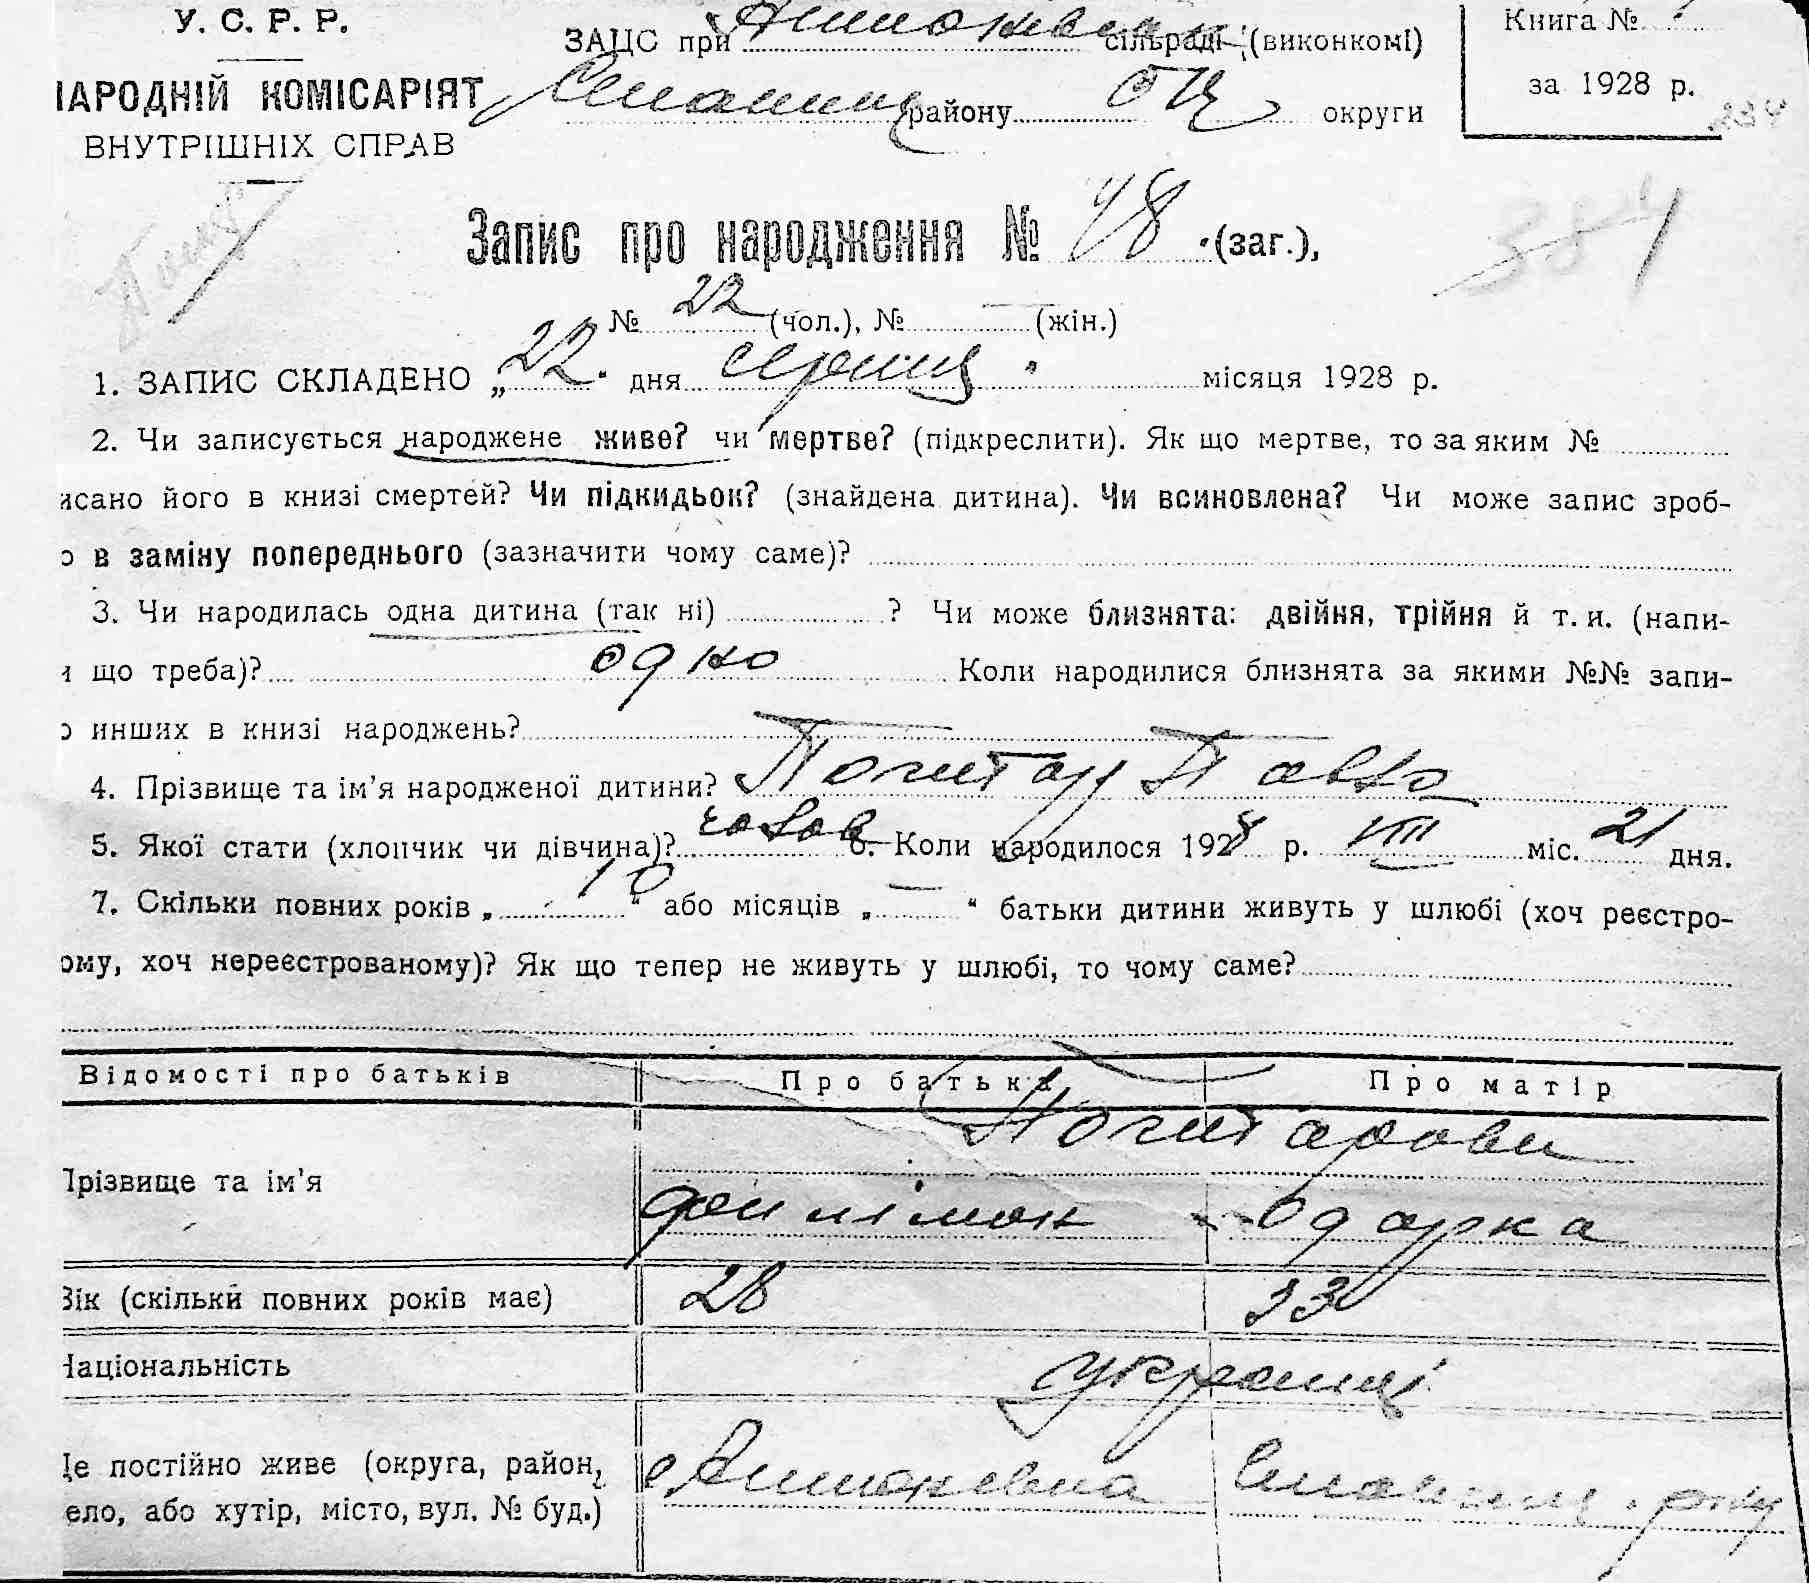 У. С. Р. Р.
НАРОДНІЙ КОМІСАРІЯТ
ВНУТРІШНІХ СПРАВ
ЗАЦС при сільраді (виконкомі)
району округи
Книга №
за 1928 р.
Запис про народження № 48 (заг.),
№ 22 (чол.), № — (жін.)
1. ЗАПИС СКЛАДЕНО „22“ дня серпня місяця 1928 р.
2. Чи записується народжене живе? чи мертве? (підкреслити). Як що мертве, то за яким №
исано його в книзі смертей? Чи підкидьок? (знайдена дитина). Чи всиновлена? Чи може запис зроб-
о в заміну попереднього (зазначити чому саме)?
3. Чи народилась одна дитина (так ні) ? Чи може близнята: двійня, трійня й т. и. (напи-
и що треба)? одно Коли народилися близнята за якими №№ запи-
о инших в книзі народжень? — —
4. Прізвище та ім’я народженої дитини? Почитар Павло
5. Якої стати (хлопчик чи дівчина)? чолов 6. Коли народилося 1928 р. VIII міс. 21 дня.
7. Скільки повних років „10“ або місяців „—“ батьки дитини живуть у шлюбі (хоч реєстро-
ому, хоч нереєстрованому)? Як що тепер не живуть у шлюбі, то чому саме?
Відомості про батьків Про батька Про матір
Прізвище та ім’я Почитарови
Филімон Одарка
Вік (скільки повних років має) 28 33
Національність українці
Де постійно живе (округа, район,
село, або хутір, місто, вул. № буд.)